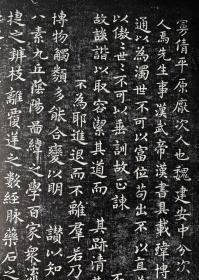 曼倩平原厭次也魏建安中分次
人焉先生事漢武帝漢書具載瑋博
通以為濁世不可以富位苟出不以直
以傲世世不可以垂訓故正諫
故詼諧以取容潔其道而其跡清
不為耶進退而不離羣若乃
博物觸類多能合變以明讚以知
八素九丘陰陽圖緯之學百家衆流
捷之辨枝離覆逆之數經脉藥石之